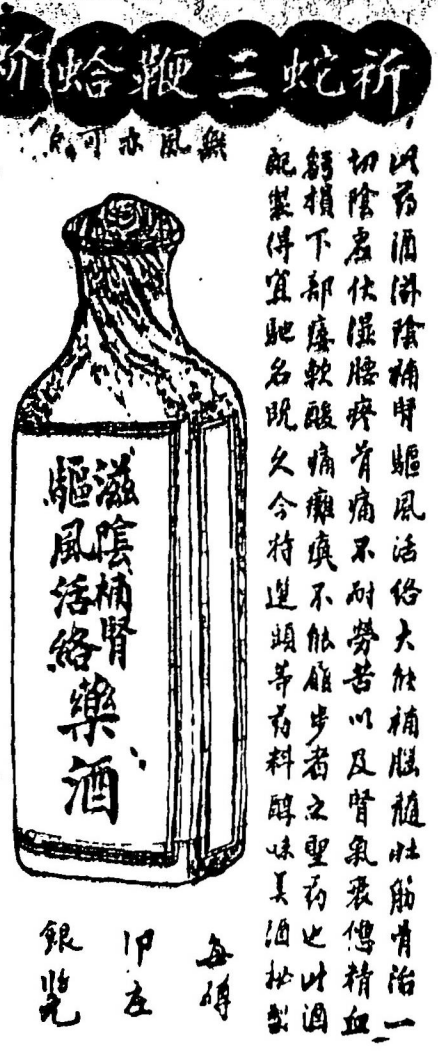 祈蛇三鞭蛤蚧
無風亦可飲
此药酒滋陰補腎驅風活络大能補腦髓壯筋骨治一
切陰虛伏濕腰疼骨痛不耐勞苦以及腎氣衰憊精血
虧損下部痿軟酸痛癱瘓不能履步者之聖药也此酒
配製得宜馳名既久今特選頭等药料醇味美酒秘製
滋陰補腎
驅風活絡
藥酒
每磅
銀